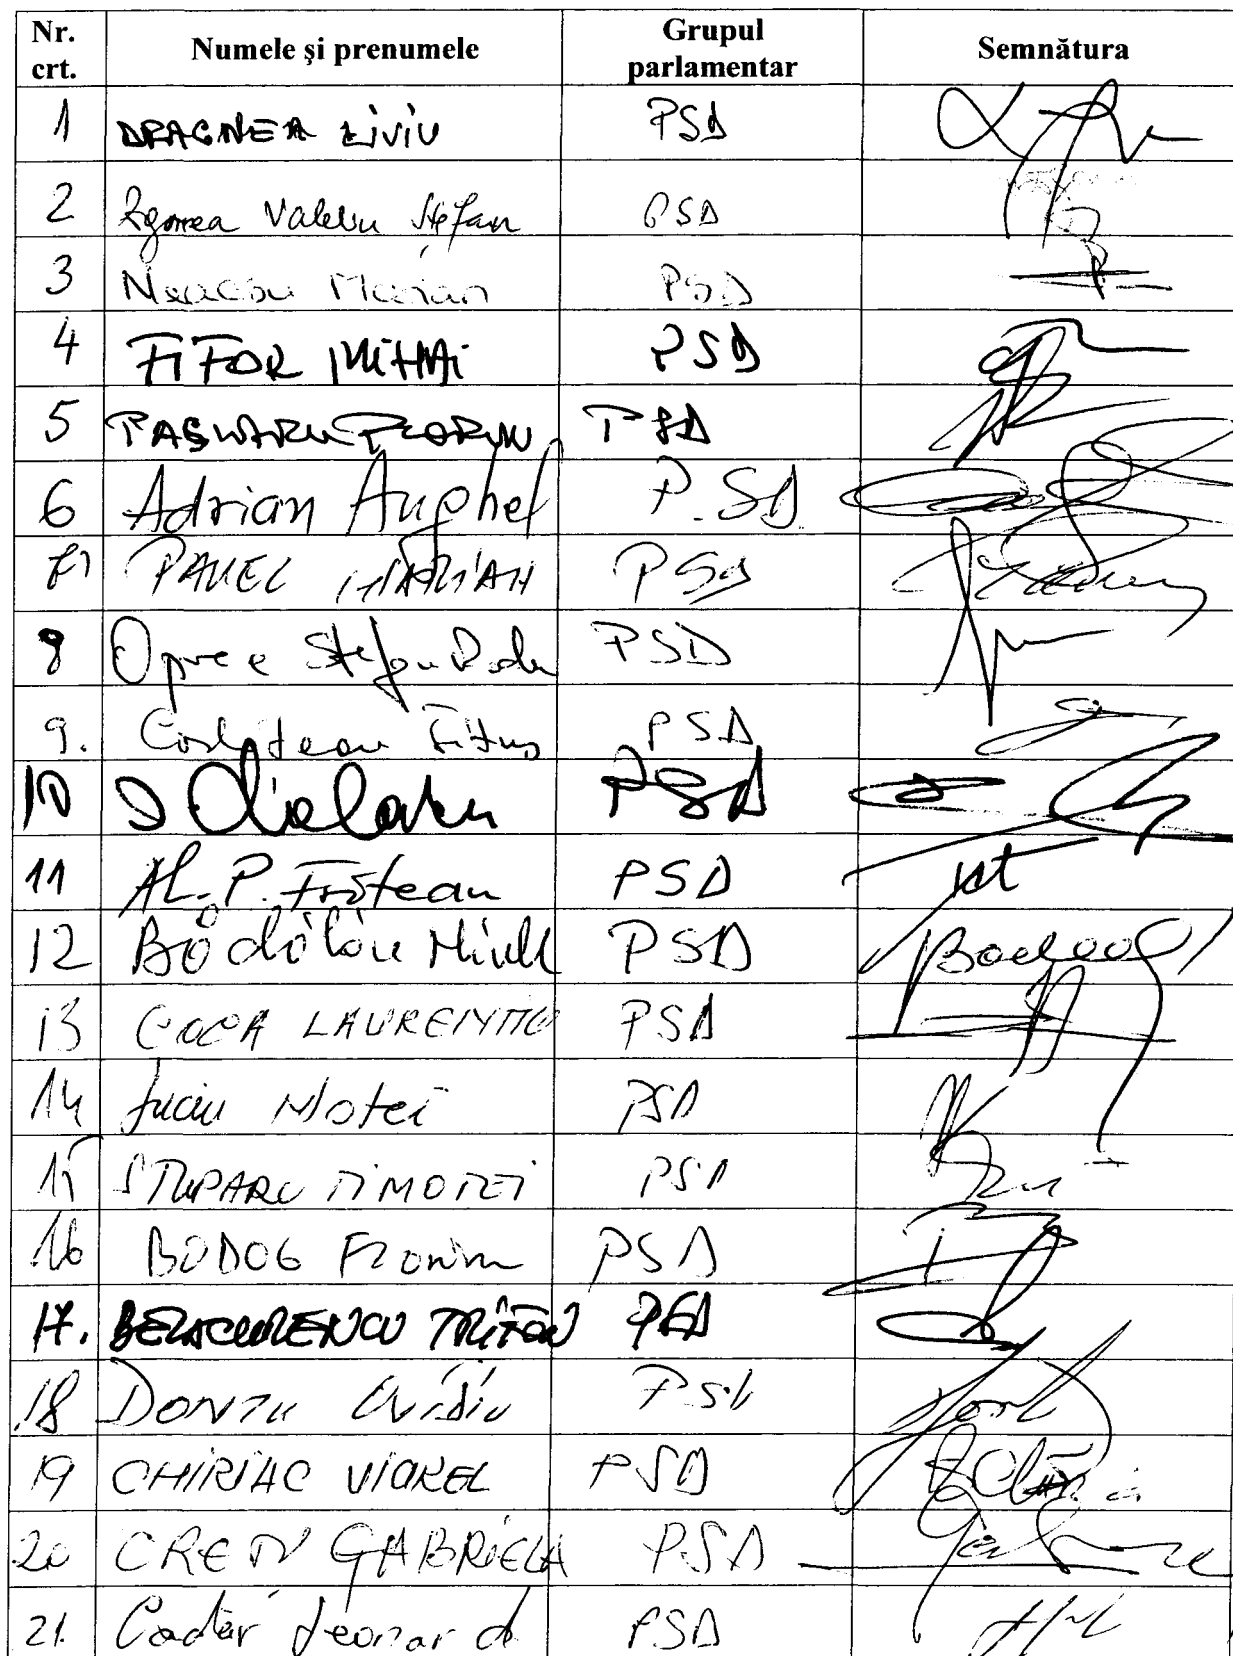 Nr. crt. Numele și prenumele Grupul parlamentar Semnătura
1 DRAGNEA LIVIU PSD
2 Zgonea Valeriu Ștefan PSD
3 Neacșu Marian PSD
4 FIFOR MIHAI PSD
5 FLORIN PSD
6 Adrian P.SD
7 PAVEL MARIAN PSD
8 Oprea Ștefan Radu PSD
9. Corlățean Titus PSD
10 PSD
11 AL. P. Frătean PSD
12 Bădălău PSD
13 COCA LAURENȚIU PSD
14 Suciu Matei PSD
15 STUPARU TIMOTEI PSD
16 BODOG Florin PSD
17. BELACURENCU TRIFON PSD
18 DONȚU Ovidiu PSD
19 CHIRIAC VIOREL PSD
20 CREȚU GABRIELA PSD
21. Cadăr Leonard PSD